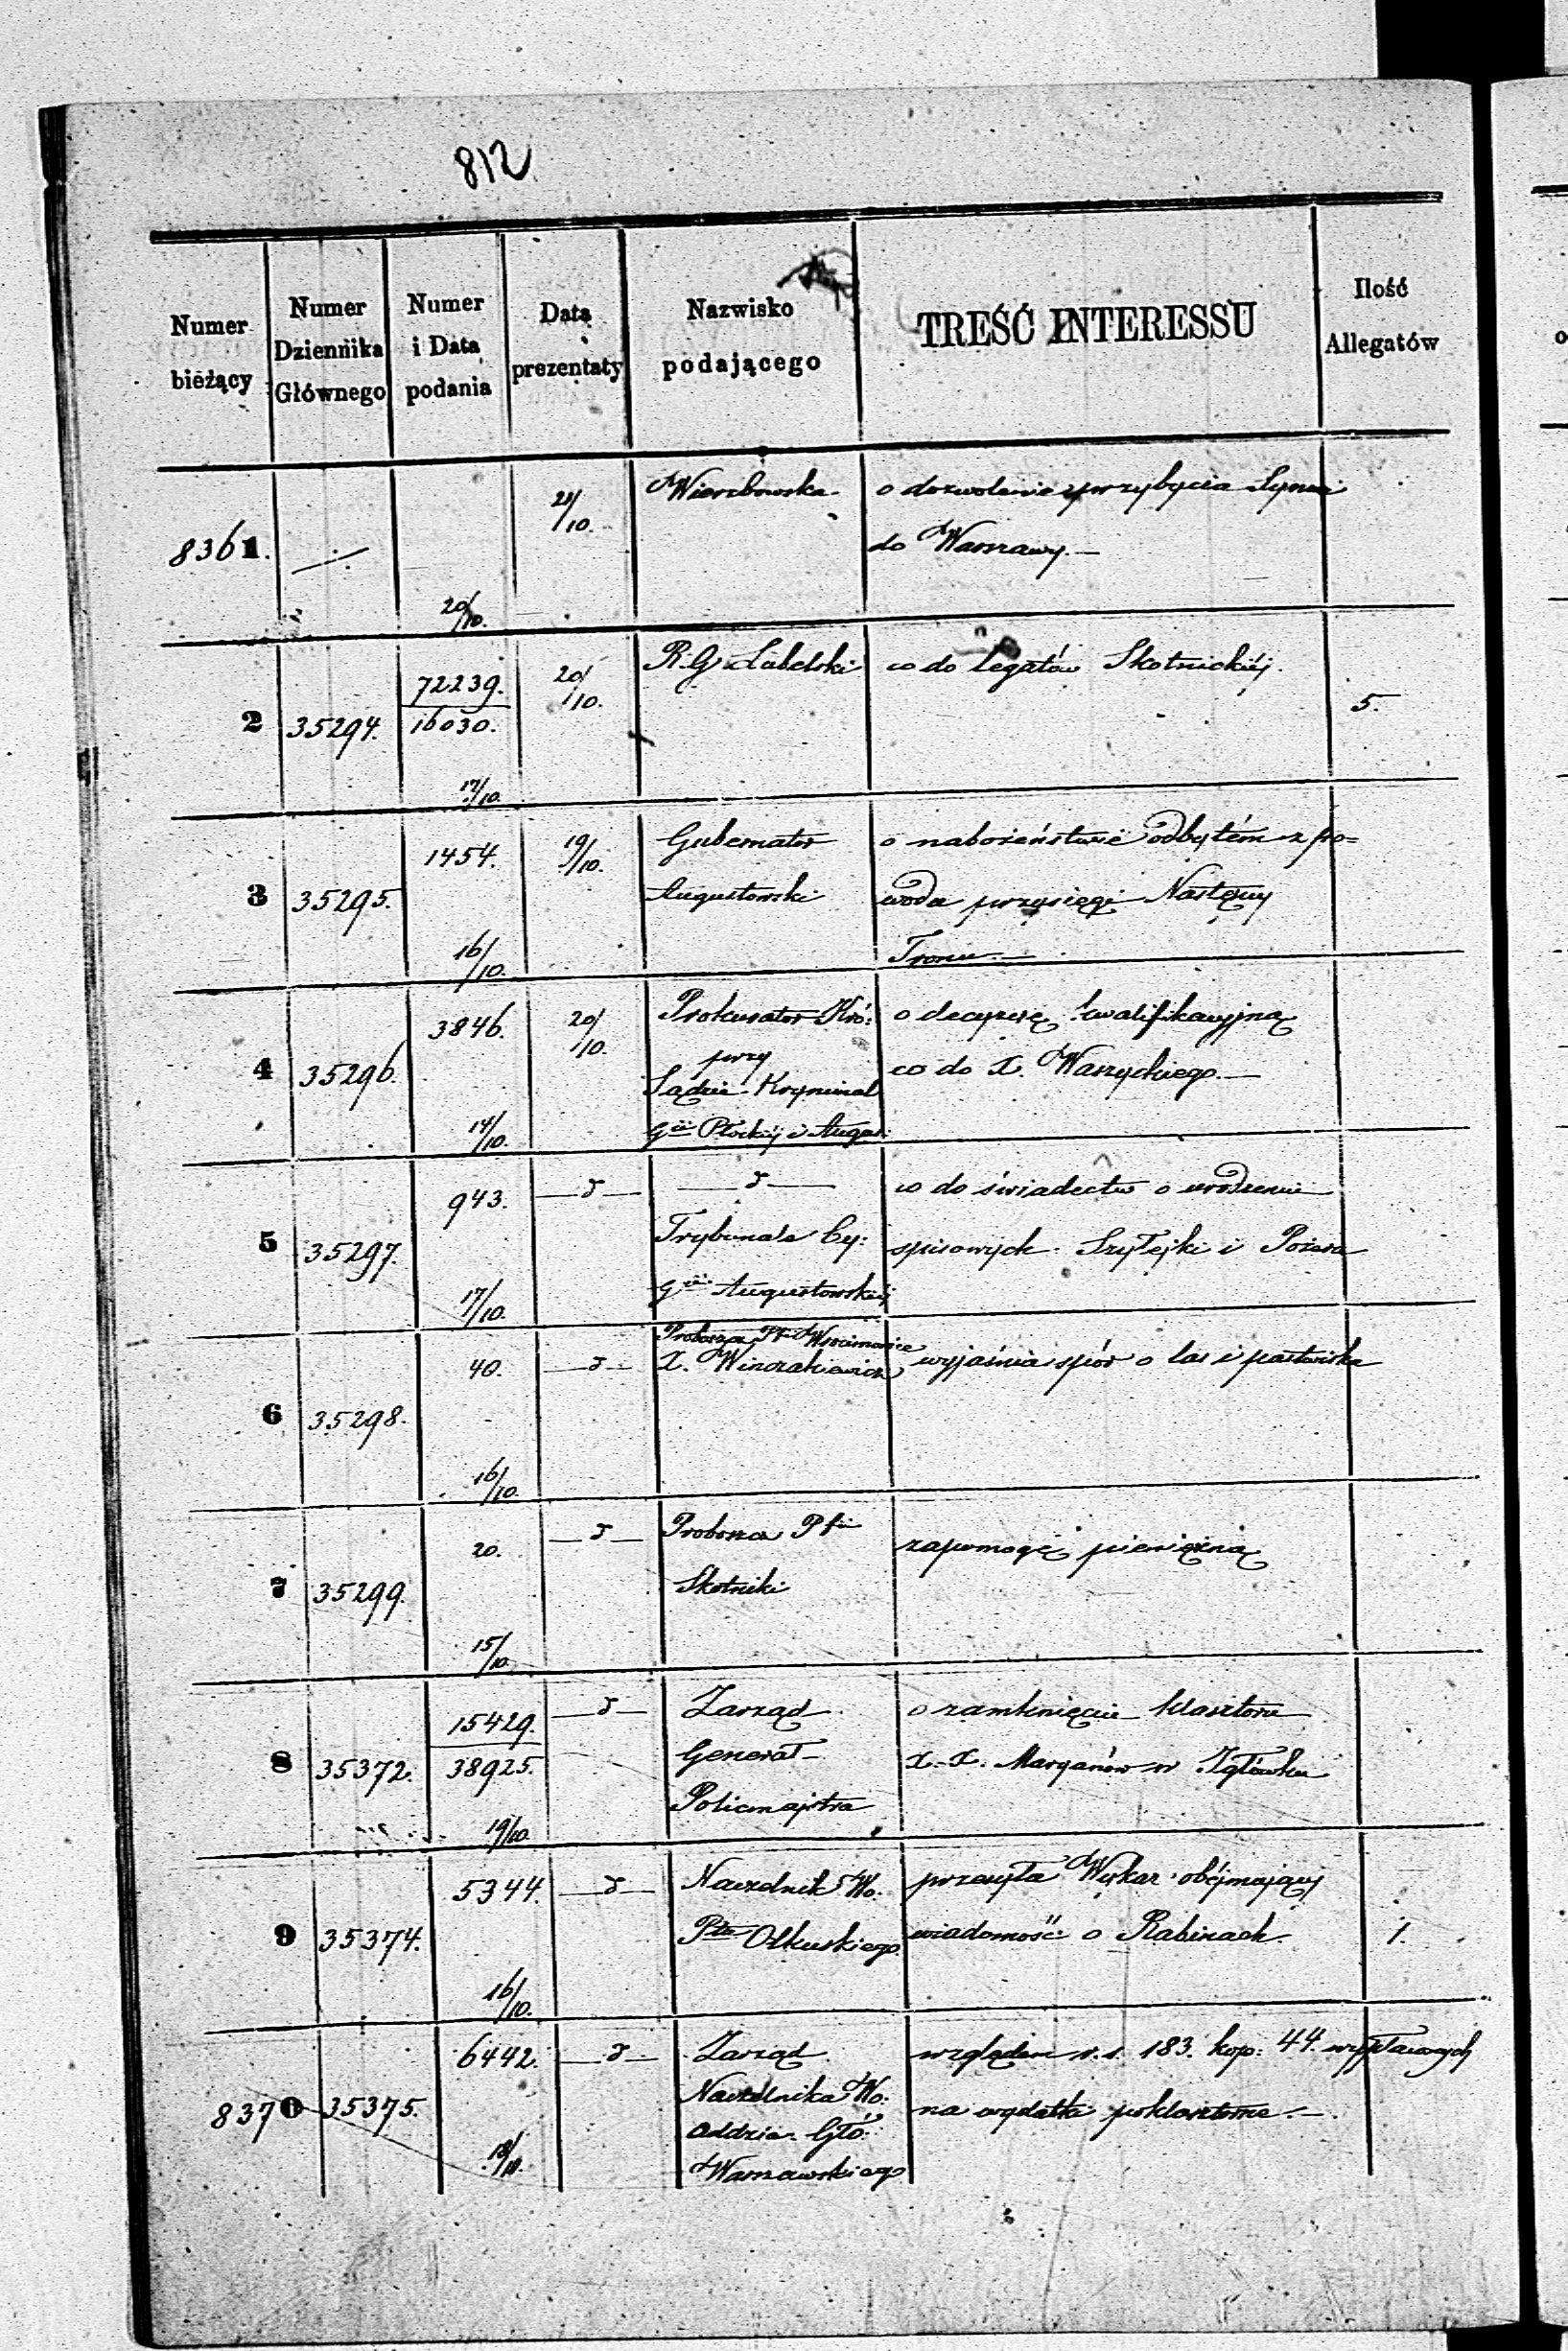 812
Numer bieżący
Numer Dziennika Głównego
Numer i Data podania
Data prezentaty
Nazwisko podającego
TREŚĆ INTERESSU
Ilość Allegatów
8361. 21/10. Wierzbowska o dozwolenie przybycia Syna
do Warszawy. —
20/10.
2 35294. 72239. 16030. 20/10. R. G. Lubelski co do legatów Skotnickiéj. 5.
17/10.
3 35295. 1454. 19/10. Gubernator o nabożeństwie odbytém z po=
Augustowski wodu przysięgi Następcy
16/10. Tronu. —
4 35296. 3846. 20/10. Prokurator Kró: o decyzyę kwalifikacyjną
przy co do X. Waszyckiego. —
Sądzie Kryminal
Gii Płockiéj i Augus:
14/10.
5 35297. 943. — d — — d — co do świadectw o urodzeniu
Trybunale Cy: spisowych Szyłejki i
Gii Augustowskiéj
17/10.
6 35298. 40. — d — Proboszcz Pfii
X. wyjaśnia spór o las i pastwiska
16/10.
7 35299. 20. — d — Proboszcz Pfii zapomogę pieniężną
Skotniki
15/10.
8 35372. 15429. 38925. — d — Zarząd o zamknięcie klasztoru
Generał- X. X. Maryanów w Igłówku
Policmajstra
19/10.
9 35374. 5344. — d — Naczelnik Wo: przesyła Wykaz obéjmający
Ptu Olkuskiego wiadomość o Rabinach. 1.
16/10.
8370 35375. 6442. — d — Zarząd względem r. s. 183. kop: 44. wypłaconych
Naczelnika Wo: na wydatki poklasztorne. —
Oddzia. Głó:
Warszawskiego
18/10.